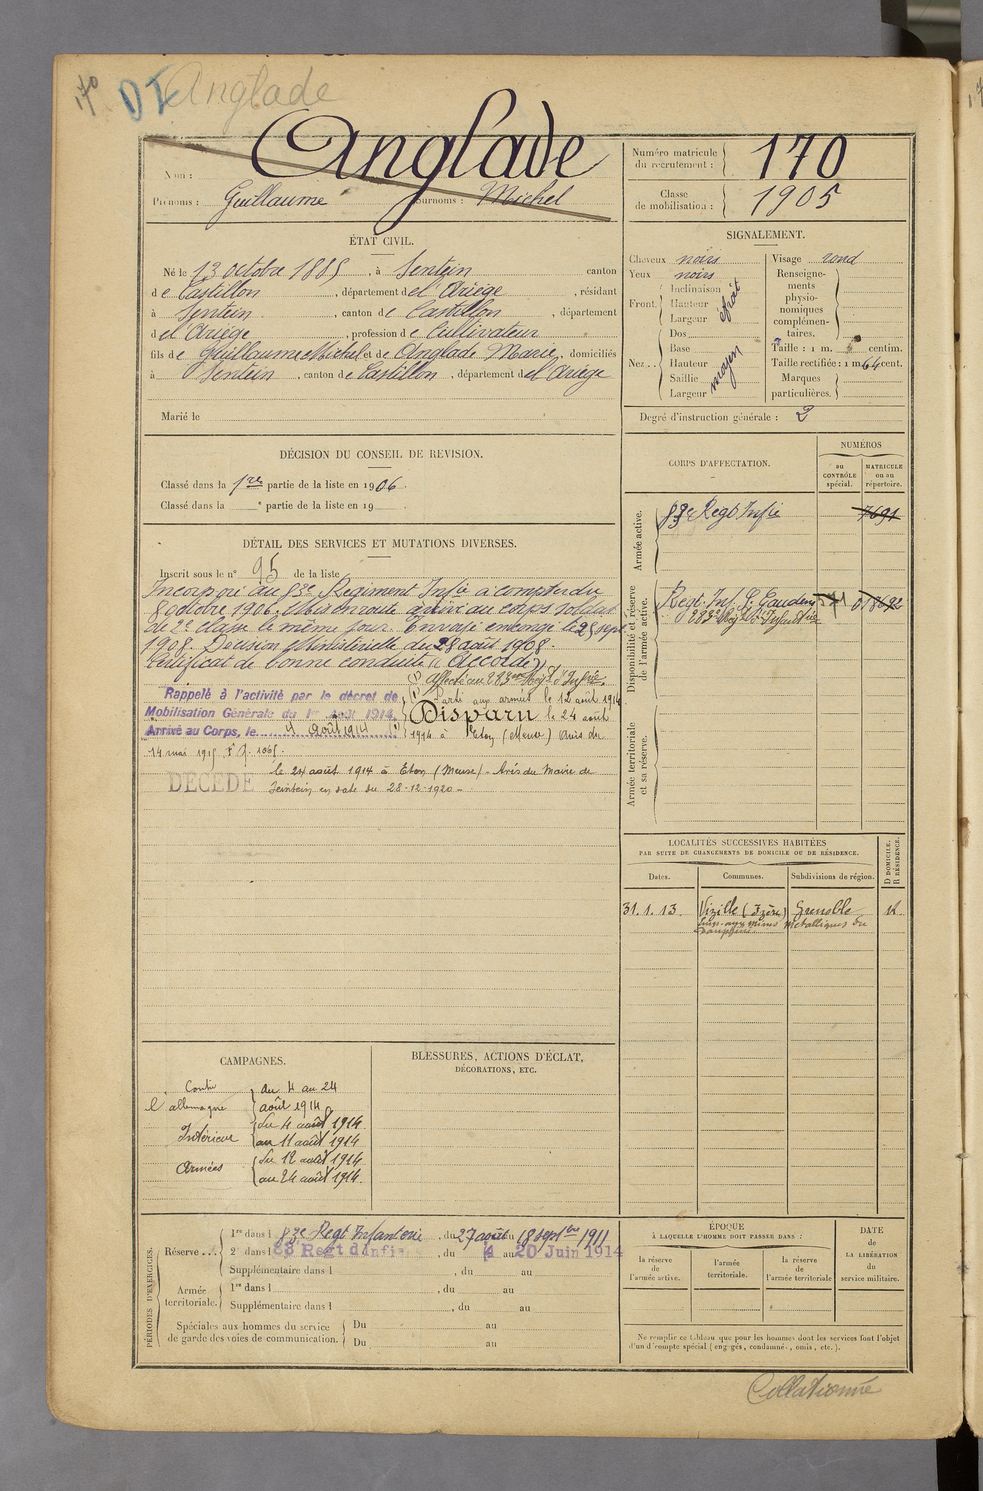 170
DI Anglade
Nom : Anglade
Prénoms : Guillaume Surnoms : Michel
Numéro matricule du recrutement : 170
Classe de mobilisation : 1905
ÉTAT CIVIL.
Né le 13 octobre 1885, à Sentein canton
de Castillon, département de l'Ariège, résidant
à Sentein, canton de Castillon, département
de l'Ariège, profession de Cultivateur
fils de Guillaume Michel et de Anglade Marie, domiciliés
à Sentein, canton de Castillon, département de l'Ariège
Marié le
SIGNALEMENT.
Cheveux noirs
Yeux noirs
Front. Inclinaison
Hauteur
Largeur
étroit
Nez.. Dos
Base
Hauteur
Saillie
Largeur
moyen
Visage rond
Renseigne-
ments
physio-
nomiques
complémen-
taires.
Taille : 1 m. centim.
Taille rectifiée : 1 m 64 cent.
Marques
particulières.
Degré d'instruction générale : 2
DÉCISION DU CONSEIL DE REVISION.
Classé dans la 1re partie de la liste en 1906.
Classé dans la e partie de la liste en 19
DÉTAIL DES SERVICES ET MUTATIONS DIVERSES.
Inscrit sous le n° 95 de la liste
Incorporé au 83e Régiment Infie à compter du
8 octobre 1906. Mis en route arrivé au corps soldat
de 2e classe le même jour. Envoyé en congé le 25 sept
1908. Décision Ministérielle du 28 août 1908.
Certificat de bonne conduite "Accordé"
(1) Affecté au 283me Régt d'Infie.
Rappelé à l'activité par le décret de
Mobilisation Générale du 1er Août 1914.
Arrivé au Corps, le 4 Août 1914 (1)
Parti aux armées le 12 août 1914
Disparu le 24 août
1914 à Eton (Meuse) Avis du
14 mai 1915
DÉCÉDÉ le 24 août 1914 à Eton (Meuse) - Avis du Maire de
Sentein en date du 28-12-1920 -
CORPS D'AFFECTATION.
NUMÉROS
au CONTRÔLE spécial.
MATRICULE ou au répertoire.
Armée active.
83e Regt Infie 7691
Disponibilité et réserve de l'armée active.
Regt Inf. St Gaudens
283e Régt d'Infanterie
Armée territoriale et sa réserve.
LOCALITÉS SUCCESSIVES HABITÉES
PAR SUITE DE CHANGEMENTS DE DOMICILE OU DE RÉSIDENCE.
Dates. Communes. Subdivisions de région. D DOMICILE. R RÉSIDENCE.
31.1.13. Vizille (Isère) Grenoble R.
aux Mines Métalliques du
Dauphiné.
CAMPAGNES.
Contre
l'allemagne
du 4 au 24
août 1914
Intérieur
du 4 août 1914
au 11 août 1914
Armées
du 12 août 1914
au 24 août 1914.
BLESSURES, ACTIONS D'ÉCLAT,
DÉCORATIONS, ETC.
PÉRIODES D'EXERCICES.
Réserve... 1re dans l 83e Regt Infanterie, du 27 août au 18 septbre 1911
2e dans l 83 Regt d'Infie, du 4 au 20 Juin 1914
Supplémentaire dans l , du au
Armée territoriale. 1re dans l , du au
Supplémentaire dans l , du au
Spéciales aux hommes du service
de garde des voies de communication.
Du au
Du au
ÉPOQUE
À LAQUELLE L'HOMME DOIT PASSER DANS :
la réserve de l'armée active.
l'armée territoriale.
la réserve de l'armée territoriale
DATE
de
LA LIBÉRATION
du
service militaire.
Ne remplir ce tableau que pour les hommes dont les services font l'objet
d'un décompte spécial (engagés, condamnés, omis, etc.).
Collationné